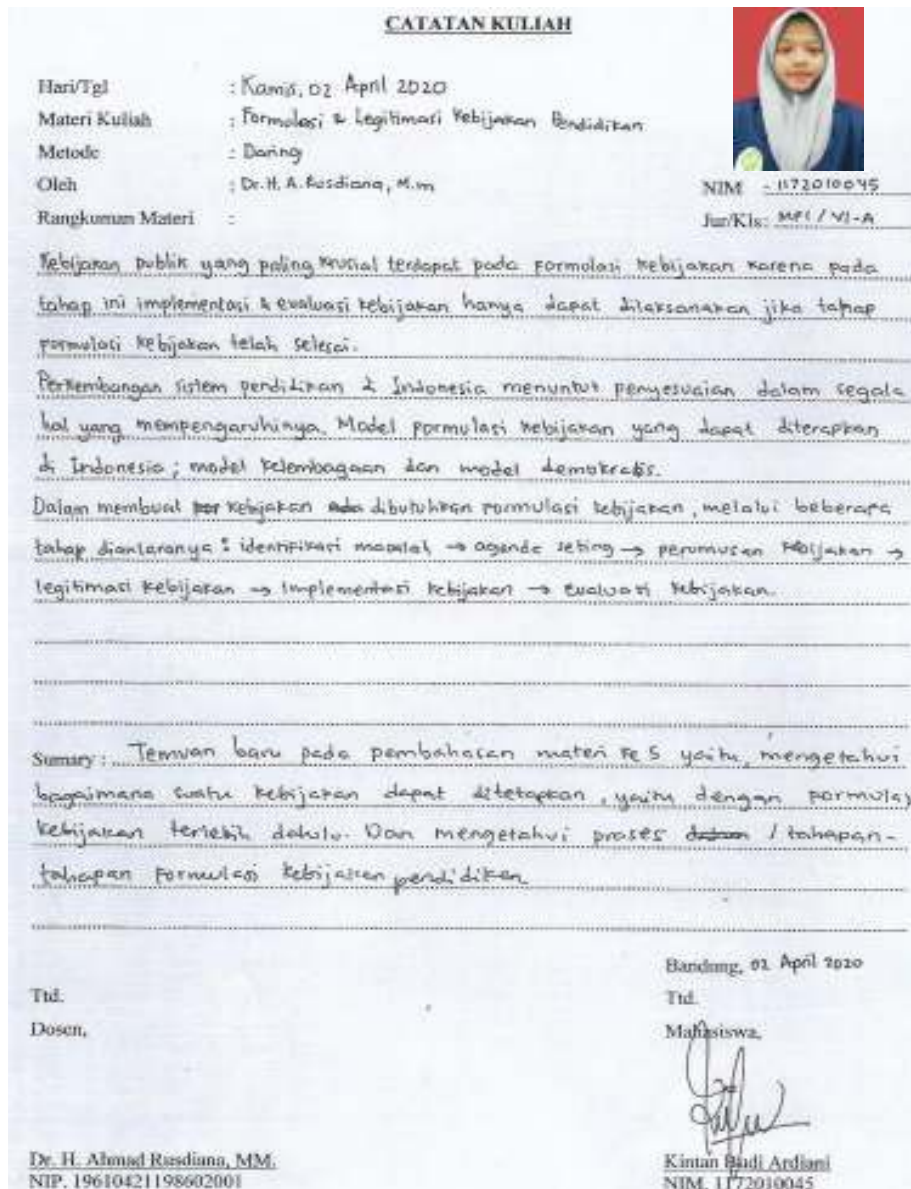 CATATAN KULIAH
Hari/Tgl : Kamis, 02 April 2020
Materi Kuliah : Formulasi & Legitimasi Kebijakan Pendidikan
Metode : Daring
Oleh : Dr. H. A. Rusdiana, M.m
NIM : 1172010045
Rangkuman Materi :
Jur/Kls: MPI / VI-A
Kebijakan publik yang paling krusial terdapat pada formulasi kebijakan karena pada
tahap ini implementasi & evaluasi kebijakan hanya dapat dilaksanakan jika tahap
formulasi kebijakan telah selesai.
Perkembangan sistem pendidikan di Indonesia menuntut penyesuaian dalam segala
hal yang mempengaruhinya. Model formulasi kebijakan yang dapat diterapkan
di Indonesia ; model kelembagaan dan model demokratis.
Dalam membuat kebijakan dibutuhkan formulasi kebijakan, melalui beberapa
tahap diantaranya : identifikasi masalah → agenda seting → perumusan kebijakan →
legitimasi kebijakan → implementasi kebijakan → evaluasi kebijakan.
Sumary : Temuan baru pada pembahasan materi ke 5 yaitu, mengetahui
bagaimana suatu kebijakan dapat ditetapkan, yaitu dengan formulasi
kebijakan terlebih dahulu. Dan mengetahui proses / tahapan-
tahapan formulasi kebijakan pendidikan
Bandung, 02 April 2020
Ttd.
Ttd.
Dosen,
Mahasiswa,
Dr. H. Ahmad Rusdiana, MM.
Kintan Budi Ardiani
NIP. 19610421198602001
NIM. 1172010045